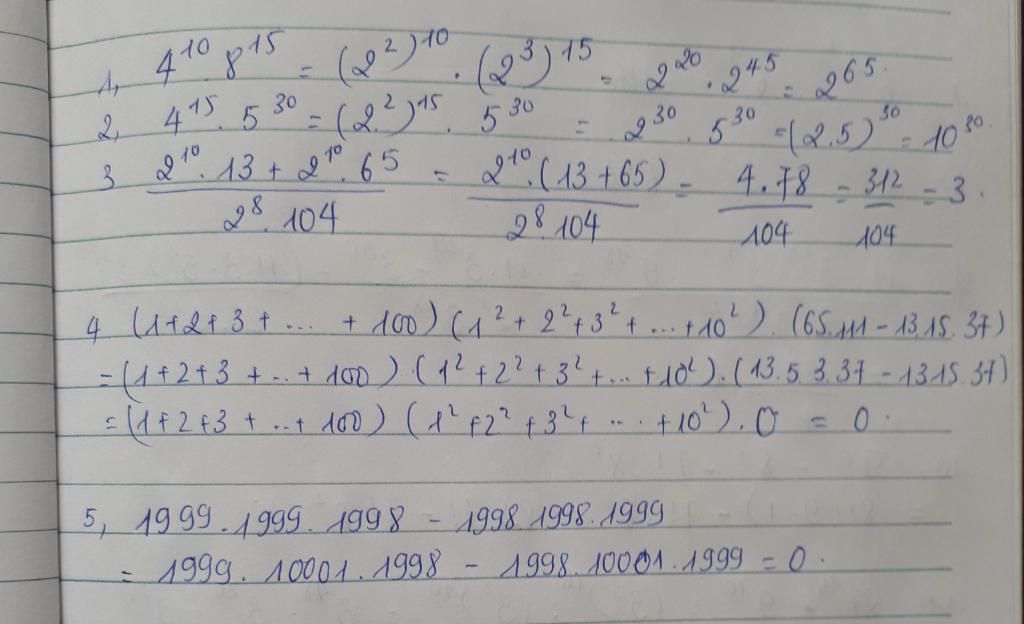 1, 4¹⁰.8¹⁵ = (2²)¹⁰.(2³)¹⁵ = 2²⁰.2⁴⁵ = 2⁶⁵.
2, 4¹⁵.5³⁰ = (2²)¹⁵.5³⁰ = 2³⁰.5³⁰ = (2.5)³⁰ = 10³⁰.
3 (2¹⁰.13 + 2¹⁰.65)/(2⁸.104) = (2¹⁰.(13+65))/(2⁸.104) = (4.78)/104 = 312/104 = 3.
4 (1+2+3+...+100)(1²+2²+3²+...+10²).(65.111-13.15.37)
=(1+2+3+...+100).(1²+2²+3²+...+10²).(13.5.3.37-13.15.37)
=(1+2+3+...+100)(1²+2²+3²+...+10²).0 = 0.
5, 1999.1999.1998 - 1998.1998.1999
= 1999.10001.1998 - 1998.10001.1999 = 0.